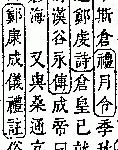 斯倉禮月令季秋
鄭虔詩倉皇已就
漢谷永傳成帝
海 又與桑通
鄭康成儀禮註俗